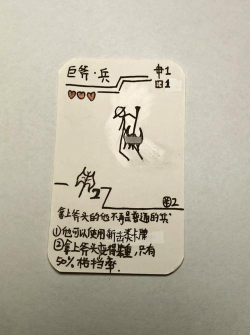 巨斧·兵
1
1
2
拿上斧头的他不再是普通的兵
①他可以使用斩击类卡牌
②拿上斧头变得笨重,只有
50%格挡率.